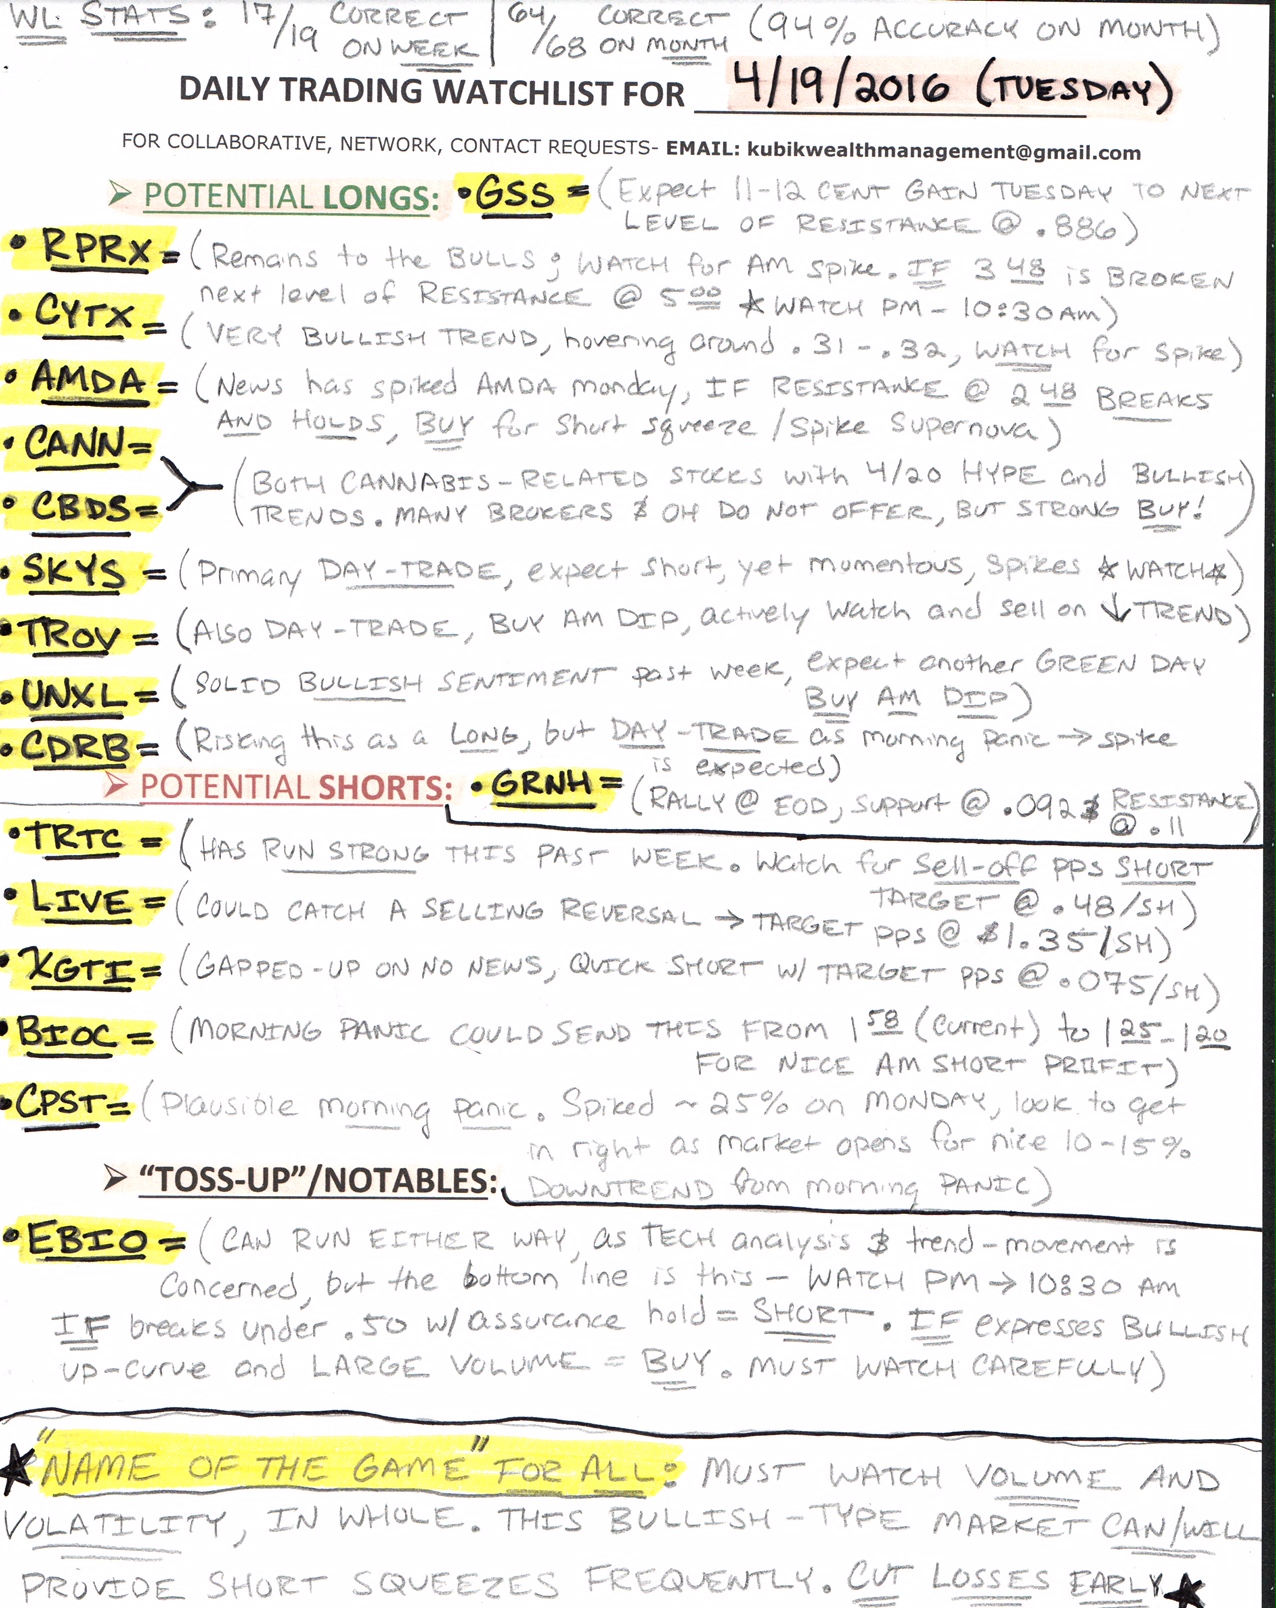 WL STATS: 17/19 CORRECT ON WEEK | 64/68 CORRECT ON MONTH (94% ACCURACY ON MONTH)
DAILY TRADING WATCHLIST FOR 4/19/2016 (TUESDAY)
FOR COLLABORATIVE, NETWORK, CONTACT REQUESTS- EMAIL: kubikwealthmanagement@gmail.com
➢ POTENTIAL LONGS: •GSS = (Expect 11-12 CENT GAIN TUESDAY TO NEXT
LEVEL OF RESISTANCE @ .886)
• RPRX = (Remains to the BULLS; WATCH for AM spike. IF 3 48 is BROKEN
next level of RESISTANCE @ 5 00 ★WATCH PM - 10:30AM)
• CYTX = (VERY BULLISH TREND, hovering around .31-.32, WATCH for Spike)
• AMDA = (News has spiked AMDA monday, IF RESISTANCE @ 2 48 BREAKS
AND HOLDS, BUY for Short squeeze/Spike Supernova)
• CANN =
(BOTH CANNABIS-RELATED STOCKS with 4/20 HYPE and BULLISH
• CBDS =
TRENDS. MANY BROKERS & OH DO NOT OFFER, BUT STRONG BUY!)
• SKYS = (Primary DAY-TRADE, expect short, yet momentous, spikes ★WATCH★)
• TROV = (Also DAY-TRADE, BUY AM DIP, actively watch and sell on ↓TREND)
• UNXL = (SOLID BULLISH SENTIMENT past week, expect another GREEN DAY
BUY AM DIP)
• CDRB = (Risking this as a LONG, but DAY-TRADE as morning panic → spike
is expected)
➢ POTENTIAL SHORTS: • GRNH = (RALLY @ EOD, SUPPORT @ .092 & RESISTANCE
@ .11)
• TRTC = (HAS RUN STRONG THIS PAST WEEK. Watch for Sell-off PPS SHORT
TARGET @ .48/SH)
• LIVE = (COULD CATCH A SELLING REVERSAL → TARGET PPS @ $1.35/SH)
• XGTI = (GAPPED-UP ON NO NEWS, QUICK SHORT W/ TARGET PPS @ .075/SH)
• BIOC = (MORNING PANIC COULD SEND THIS FROM 1 58 (Current) to 1 25-1 20
FOR NICE AM SHORT PROFIT)
• CPST = (Plausible morning panic. Spiked ~25% on MONDAY, look to get
in right as market opens for nice 10-15%
DOWNTREND from morning PANIC)
➢ "TOSS-UP"/NOTABLES:
• EBIO = (CAN RUN EITHER WAY, as TECH analysis & trend-movement is
Concerned, but the bottom line is this - WATCH PM → 10:30 AM
IF breaks under .50 w/ assurance hold = SHORT. IF expresses BULLISH
up-curve and LARGE VOLUME = BUY. MUST WATCH CAREFULLY)
★"NAME OF THE GAME" FOR ALL: MUST WATCH VOLUME AND
VOLATILITY, IN WHOLE. THIS BULLISH-TYPE MARKET CAN/WILL
PROVIDE SHORT SQUEEZES FREQUENTLY. CUT LOSSES EARLY★